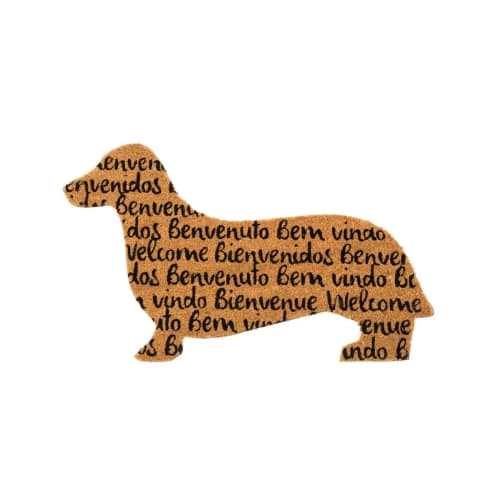 ienven
envenidos B
Benvenu
dos Benvenuto Bem vindo
Welcome Bienvenidos Benven
dos Benvenuto Bem vindo Be
m vindo Bienvenue Welcome
uto Bem vind enue
os B indo B